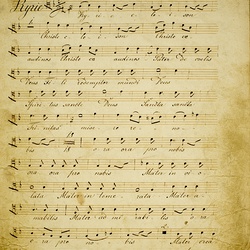 Kyrie e le i son
Christe e le i son Christe
audi nos Christe ex audi nos Pater de coelis
Deus Fi li redemptor mundi Deus
Spiri tus sancte Deus Sancta
Tri nitas mise re re no
bis ora ora pro nobis
ora ora pro nobis Mater in vi o
lata Mater in teme rata Mater a
mabilis Mater ad mi rabi lis o ra
ora pro no bis Mater